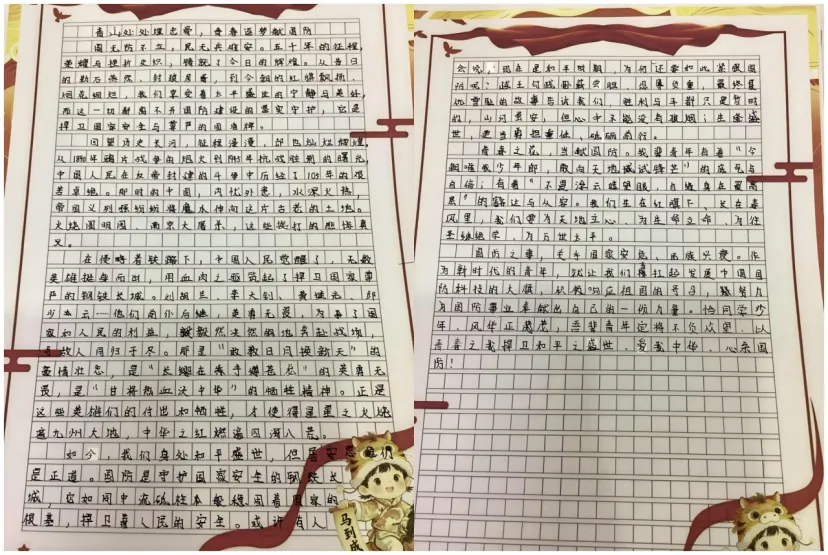 青山处处埋忠骨，青春逐梦献国防
国无防不立，民无兵难安。五十年的征程，
荣耀与挫折交织，铸就了今日的辉煌。从昔日
的勒石燕然、封狼居胥，到今朝的红旗飘扬、
烟花绚烂，我们享受着太平盛世的宁静与美好，
而这一切都离不开国防建设的坚实守护，它是
捍卫国家安全与尊严的固若
回望历史长河，征程漫漫，却也灿烂辉煌，
从1840年鸦片战争的炮火到1945年抗战胜利的曙光，
中国人民在反帝封建的斗争中历经了105年的艰
苦卓绝。那时的中国，内忧外患，水深火热，
帝国义列强纷纷将魔爪伸向这片古老的土地。
火烧圆明园、南京大屠杀，这些挨打的悲伤真
义。
在侵略者铁蹄下，中国人民觉醒了，无数
英雄挺身而出，用血肉之躯筑起了捍卫国家尊
严的钢铁长城。刘胡兰、李大钊、黄继光、邱
少云……他们前仆后继，英勇无畏，为了国
家和人民的利益，毅然决然的地奔赴战场，
与敌人同归于尽。那是“敢教日月换新天”的
豪情壮志，是“长缨在手缚苍龙”的英勇无
畏，是“甘将热血沃中华”的牺牲精神。正是
这些英雄们的付出和牺牲，才使得星星之火烧
遍九州大地，中华之红燃遍四海八荒。
如今，我们身处和平盛世，但居安思危仍
是正道。国防是守护国家安全的钢铁长
城，它如同中流砥柱般稳固着国家的
根基，捍卫着人民的安全。或许有人
会说，现在是和平时期，为何还要如此紧张国
防呢？越王勾践卧薪尝胆、忍辱负重，最终复
仇雪耻的故事告诉我们，胜利与平静只是暂时
的，山河虽安，但心中不能没有狼烟；生逢盛
世，更当勇担重任、砥砺前行。
青春之花，当献国防。我辈青年有着“今
朝唯我少年郎，敢向天地试锋芒”的底气与
自信；有着“不是浮云遮望眼，自缘身在最高
层”的豁达与从容。我们生在红旗下、长在春
风里，我们要为天地立心、为生命立命、为往
圣继绝学、为万世太平。
国防之事，关乎国家安危、民族兴衰。作
为新时代的青年，就让我们扛起发展中国国
防科技的大旗，积极响应祖国的号召，努力
为国防事业奉献出自己的一份力量。恰同学少
年、风华正茂，吾辈青年定将不负众望，以
青春之我捍卫和平之盛世，爱我中华、心系国
防！
马到成